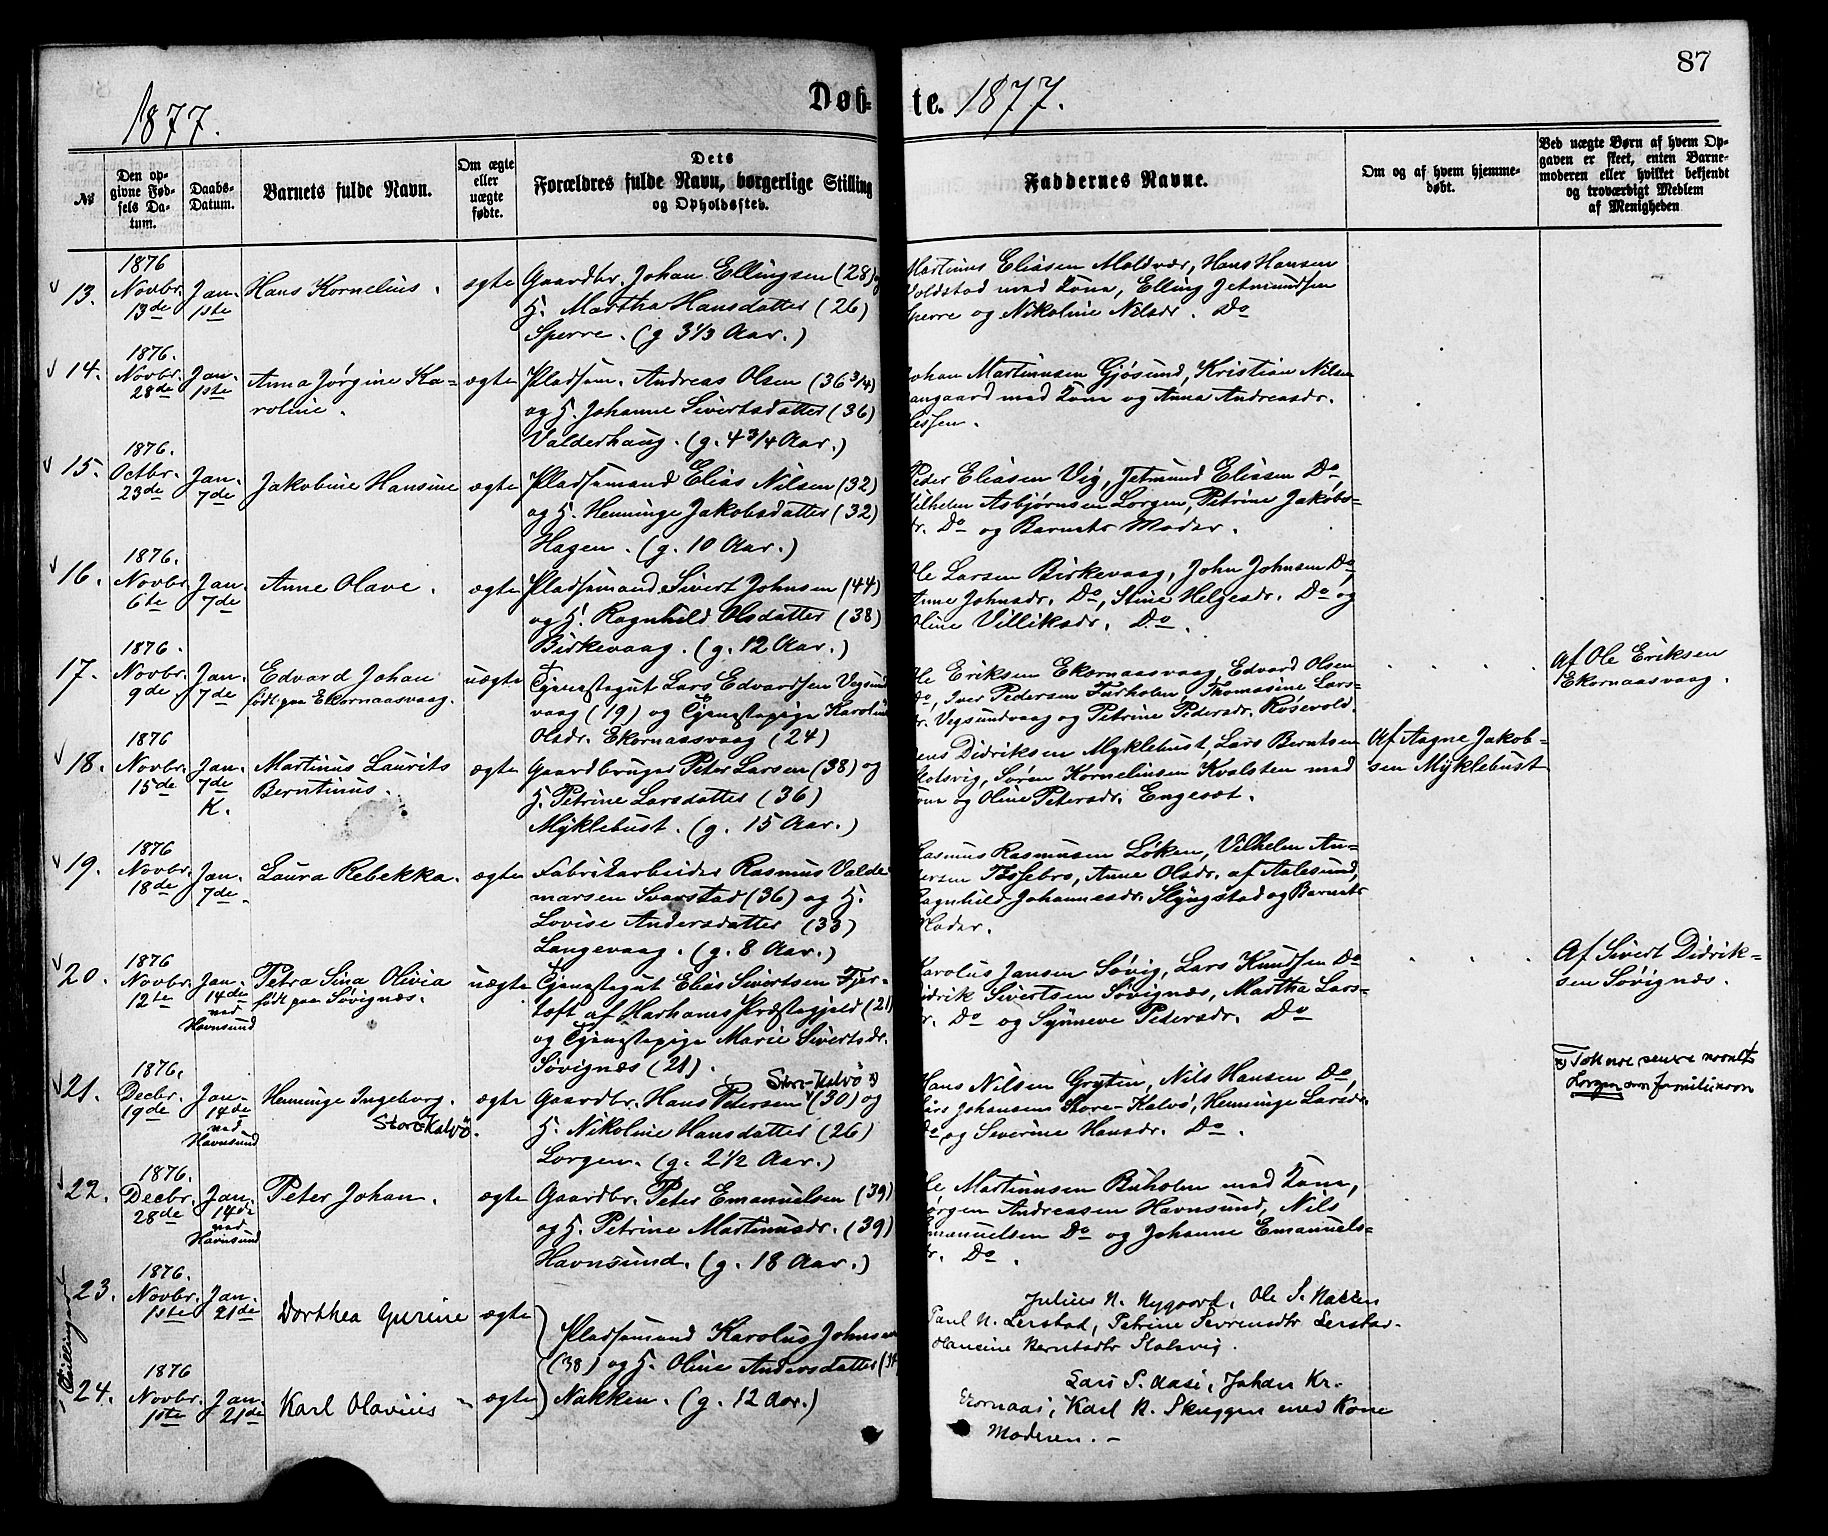 87
1877.
Døb-
te. 1877.
№
Den op-
givne Fød-
sels Da-
tum.
Daabs-
Datum.
Barnets fulde Navn.
Om ægte
eller
uægte
fødte.
Dets
Forældres fulde Navn, borgerlige Stilling
og Opholdssted.
Faddernes Navne.
Om og af hvem hjemme-
døbt.
Ved uægte Børn af hvem Op-
gaven er skeet, enten Barne-
moderen eller hvilket bekjendt
og troværdigt Medlem
af Menigheden
13.
1876
Novbr.
13de
Jan.
1ste
Hans Kornelius.
ægte
Gaardbr. Johan Ellingsen (28) og
H. Martha Hansdatter (26)
Sperre. (g 3 1/3 Aar.)
Martinus Eliasen Moldvær, Hans Hansen
Voldstad med Kone, Elling Jetmundsen
Sperre og Nikoline Nilsdr. Do
14.
1876.
Novbr.
28de
Jan.
1ste
Anna Jørgine Ka-
roline.
ægte
Pladsm. Andreas Olsen (36 3/4)
og H. Johanne Sivertsdatter (36)
Valderhaug. (g. 4 3/4 Aar.)
Johan Martinusen Gjøsund, Kristian Nilsen
angaard med Kone og Anna Andreasdr.
essen.
15.
1876.
Octbr.
23de
Jan.
7de
Jakobine Hansine
ægte
Pladsmand Elias Nilsen (32)
og H. Henninge Jakobsdatter (32)
Hagen. (g. 10 Aar.)
Peder Eliasen Vig, Jetmund Eliasen Do,
Vilhelm Asbjørnsen Lorgen, Petrine Jakobs-
dr. Do og Barnets Moder.
16.
1876.
Novbr.
6te
Jan.
7de
Anne Olave.
ægte
Pladsmand Sivert Johnsen (44)
og H. Ragnhild Olsdatter (38)
Birkevaag. (g. 12 Aar.)
Ole Larsen Birkevaag, John Johnsen Do,
Anne Johnsdr. Do, Stine Helgesdr. Do og
Oline Villiksdr. Do.
17.
1876.
Novbr.
9de
Jan.
7de
Edvard Johan
født paa Ekornaasvaag.
uægte
Tjenestegut Lars Edvardsen Vegsund
vaag (19) og Tjenestepige Karoline
Olsdr. Ekornaasvaag (24)
Ole Eriksen Ekornaasvaag, Edvard Olsen
Do, Iver Pedersen Furholm, Thomasine Lars-
dr. Vegsundvaag og Petrine Pedersdr. Rosevold.
Af Ole Eriksen
Ekornaasvaag.
18.
1876
Novbr.
15de
Jan.
7de
K.
Martinus Laurits
Berntinus.
ægte
Gaardbruger Peter Larsen (38) og
H. Petrine Larsdatter (36)
Myklebust. (g. 15 Aar.)
Jens Didriksen Myklebust, Lars Berntsen
Slotsvig, Søren Kornelinsen Kvalsten med
Kone og Oline Petersdr. Engeset.
Af Aagne Jakob-
sen Myklebust
19.
1876
Novbr.
18de
Jan.
7de
Laura Rebekka.
ægte
Fabrikarbeider Rasmus Valde
marsen Svarstad (36) og H.
Lovise Andersdatter (33)
Langevaag. (g. 8 Aar.)
Rasmus Rasmusen Løken, Vilhelm An-
dersen Tossebro, Anne Olsdr. af Aalesund,
Ragnhild Johannesdr. Slyngstad og Barnets
Moder.
20.
1876
Novbr.
12te
Jan.
14de
ved
Havnsund
Petra Sina Olivia
født paa Søvignæs.
uægte
Tjenestegut Elias Sivertsen Fjør-
toft af Harhams Præstegjeld (21)
og Tjenestepige Marie Sivertsdr.
Søvignæs (21).
Karolus Jansen Søvig, Lars Knudsen Do
Didrik Sivertsen Søvignæs, Martha Lars-
dr. Do og Synneve Pedersdr. Do
Af Sivert Didrik-
sen Søvignæs.
21.
1876.
Decbr.
19de
Jan.
14de
ved
Havnsund
Henninge Ingeborg.
Store Kalvø.
ægte
Store-Kalvø x)
Gaardbr. Hans Petersen (30) og
H. Nikoline Hansdatter (26)
Lorgen. (g. 2 1/2 Aar.)
Hans Nilsen Grytin, Nils Hansen Do,
Lars Johansen Store-Kalvø, Henninge Larsdr.
Do og Severine Hansdr. Do.
x) Tok nve senere navnet
Lorgen som familienavn
22.
1876.
Decbr.
28de
Jan.
14de
ved
Havnsund
Peter Johan.
ægte
Gaardbr. Peter Emanuelsen (39)
og H. Petrine Martinusdr. (39)
Havnsund. (g. 18 Aar.)
Ole Martinusen Buholm med Kone,
Jørgen Andreasen Havnsund, Nils
Emanuelsen Do og Johanne Emanuels-
dr. Do.
Tvillinger
23.
1876.
Novbr.
1ste
Jan.
21de
Dorthea Gurine
ægte
Pladsmand Karolus Johnsen
(38) og H. Oline Andersdatter (34
Nakken. (g. 12 Aar.)
Julius N. Nygaard, Ole S. Nakken
Paul N. Lerstad, Petrine Sevrensdtr Lerstad
Olancine Berntsdtr Slotsvig.
24.
1876
Novbr.
1ste
Jan.
21de
Karl Olavius
ægte
Lars P. Aase, Johan Kr.
Ekornaas, Karl N. Skuggen med Kone
Moderen. –